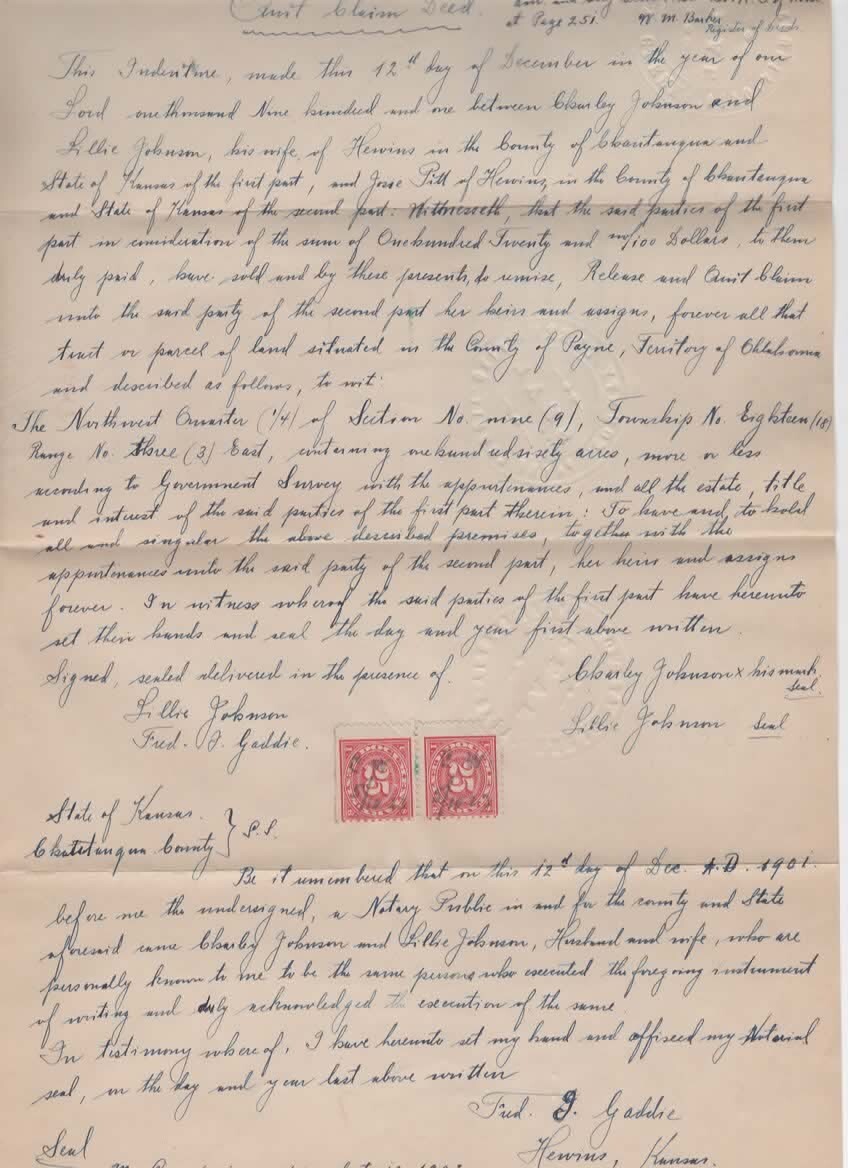 Quit Claim Deed.
at Page 251. W. M. Barker
Register of Deeds.
This Indenture, made this 12th day of December in the year of our
Lord one thousand Nine hundred and one between Charley Johnson and
Lillie Johnson, his wife, of Hewins in the County of Chautauqua and
State of Kansas of the first part, and Josie Pitt of Hewins, in the County of Chautauqua
and State of Kansas of the second part: Witnesseth, that the said parties of the first
part in consideration of the sum of One hundred Twenty and no/100 Dollars, to them
duly paid, have sold and by these presents, do remise, Release and Quit Claim
unto the said party of the second part her heirs and assigns, forever all that
tract or parcel of land situated in the County of Payne, Territory of Oklahoma
and described as follows, to wit:
The Northwest Quarter (1/4) of Section No. nine (9), Township No. Eighteen (18)
Range No. three (3) East, containing one hundred sixty acres, more or less
according to Government Survey with the appurtenances, and all the estate, title
and interest of the said parties of the first part therein: To have and to hold
all and singular the above described premises, together with the
appurtenances unto the said party of the second part, her heirs and assigns
forever. In witness whereof the said parties of the first part have hereunto
set their hands and seal the day and year first above written.
Signed, sealed delivered in the presence of. Charley Johnson x his mark.
seal.
Lillie Johnson Lillie Johnson seal
Fred. J. Gaddie.
25 25
State of Kansas.
Chautauqua County } S.S.
Be it remembered that on this 12th day of Dec. A.D. 1901.
before me the undersigned, a Notary Public in and for the county and State
aforesaid came Charley Johnson and Lillie Johnson, Husband and wife, who are
personally known to me to be the same persons who executed the foregoing instrument
of writing and duly acknowledged the execution of the same
In testimony whereof, I have hereunto set my hand and affixed my Notarial
seal, on the day and year last above written
Fred. J. Gaddie
Seal Hewins, Kansas.